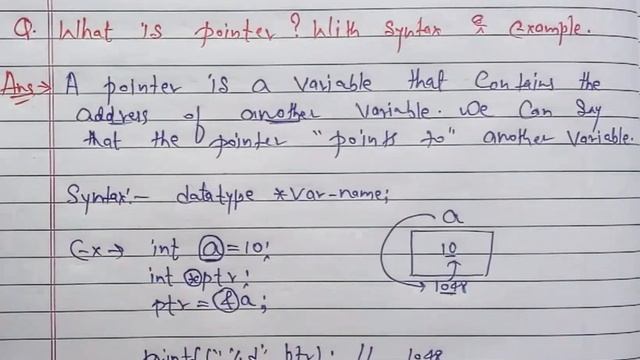 Q. What is pointer? With Syntax & Example.
Ans→ A pointer is a variable that contains the
address of another variable. We can say
that the pointer "points to" another variable.
Syntax:- datatype *var-name;
a
Ex→ int a=10;
10
int *ptr;
1048
ptr = &a;
printf("%d", ptr); // 1048